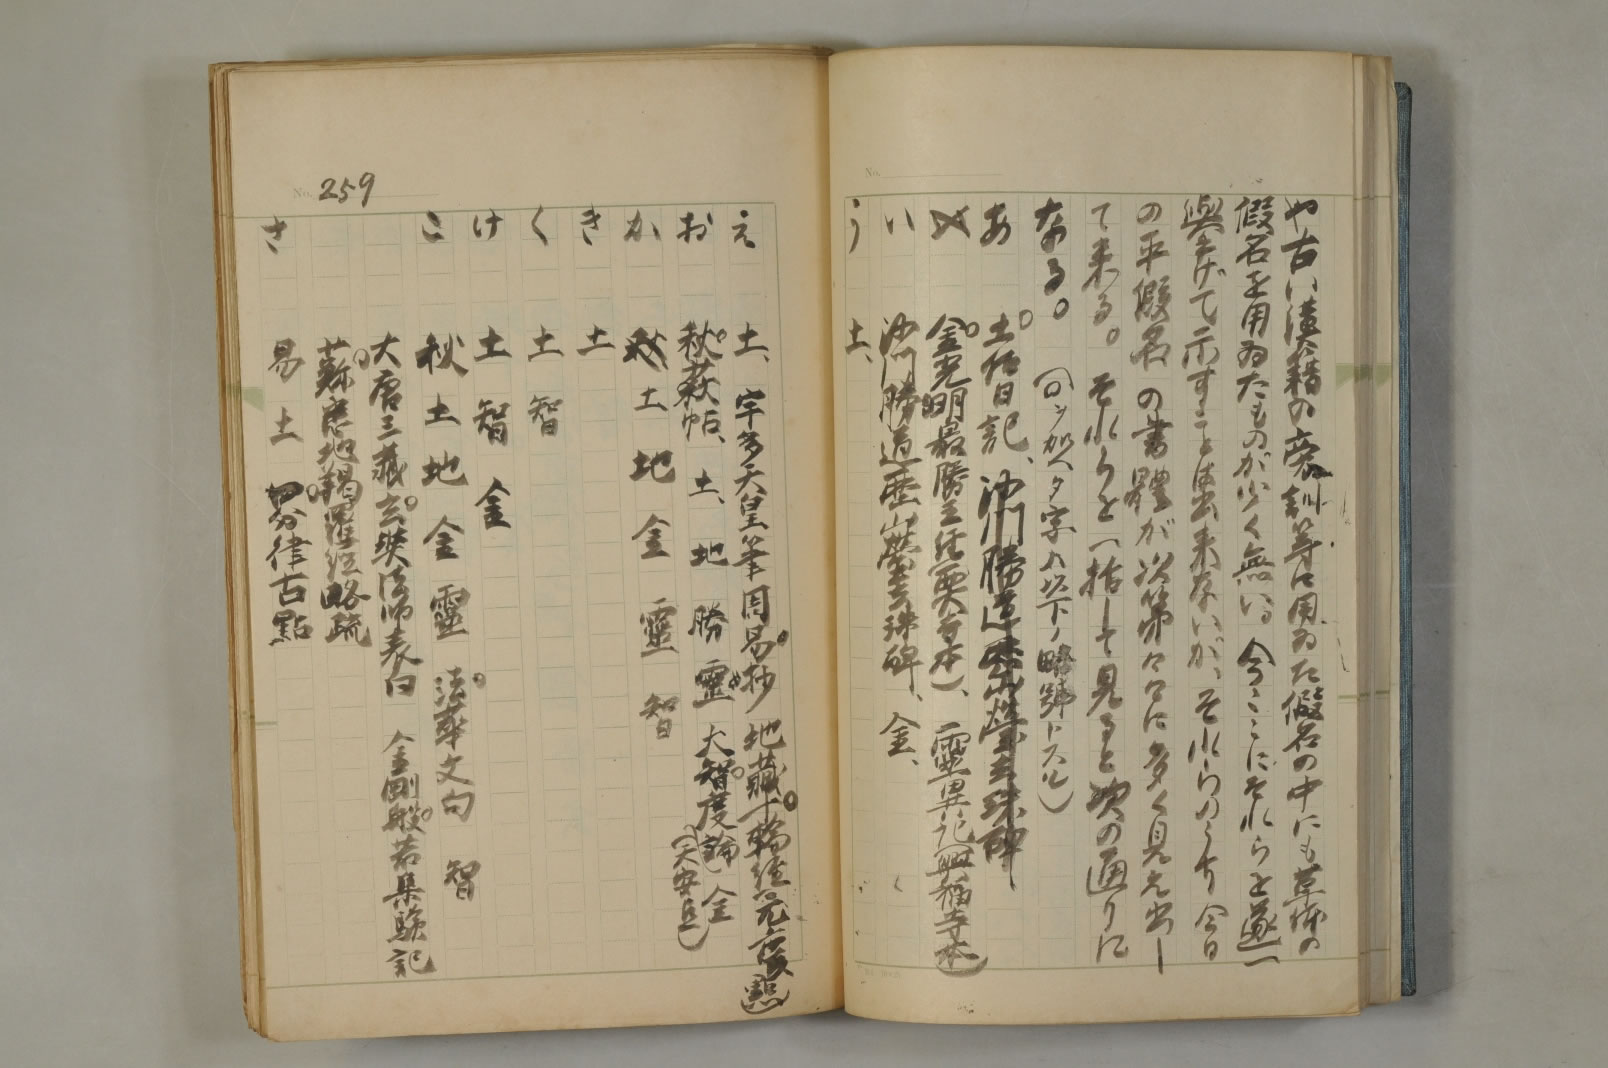 や古い漢籍の旁訓等に用ゐた假名の中にも草体の
假名を用ゐたものが少く無い。今ここにそれらを逐一
擧げて示すことは出来ないが、それらのうち今日
の平假名の書體が次第々々に多く見え出し
て来る。それらを一括して見ると次の通りに
なる。(○ヲ加ヘタ字ハ以下ノ略號トスル)
あ 土佐日記、沙門勝道歴山瑩玄珠碑
金光明最勝王経(西大寺本)、靈異記(興福寺本)
い 沙門勝道歴山瑩玄珠碑、金、
う 土、
No. 259
え 土、宇多天皇筆周易抄 地藏十輪経元慶點)
お 秋萩帖、土、地 勝 靈 大智度論 金
(天安点)
か 秋 土 地 金 靈 智
き 土
く 土 智
け 土 智 金
こ 秋 土 地 金 靈 法華文句 智
大唐三藏玄奘法師表白 金剛般若集驗記
蘇悉地羯羅経略疏
さ 易 土 四分律古點